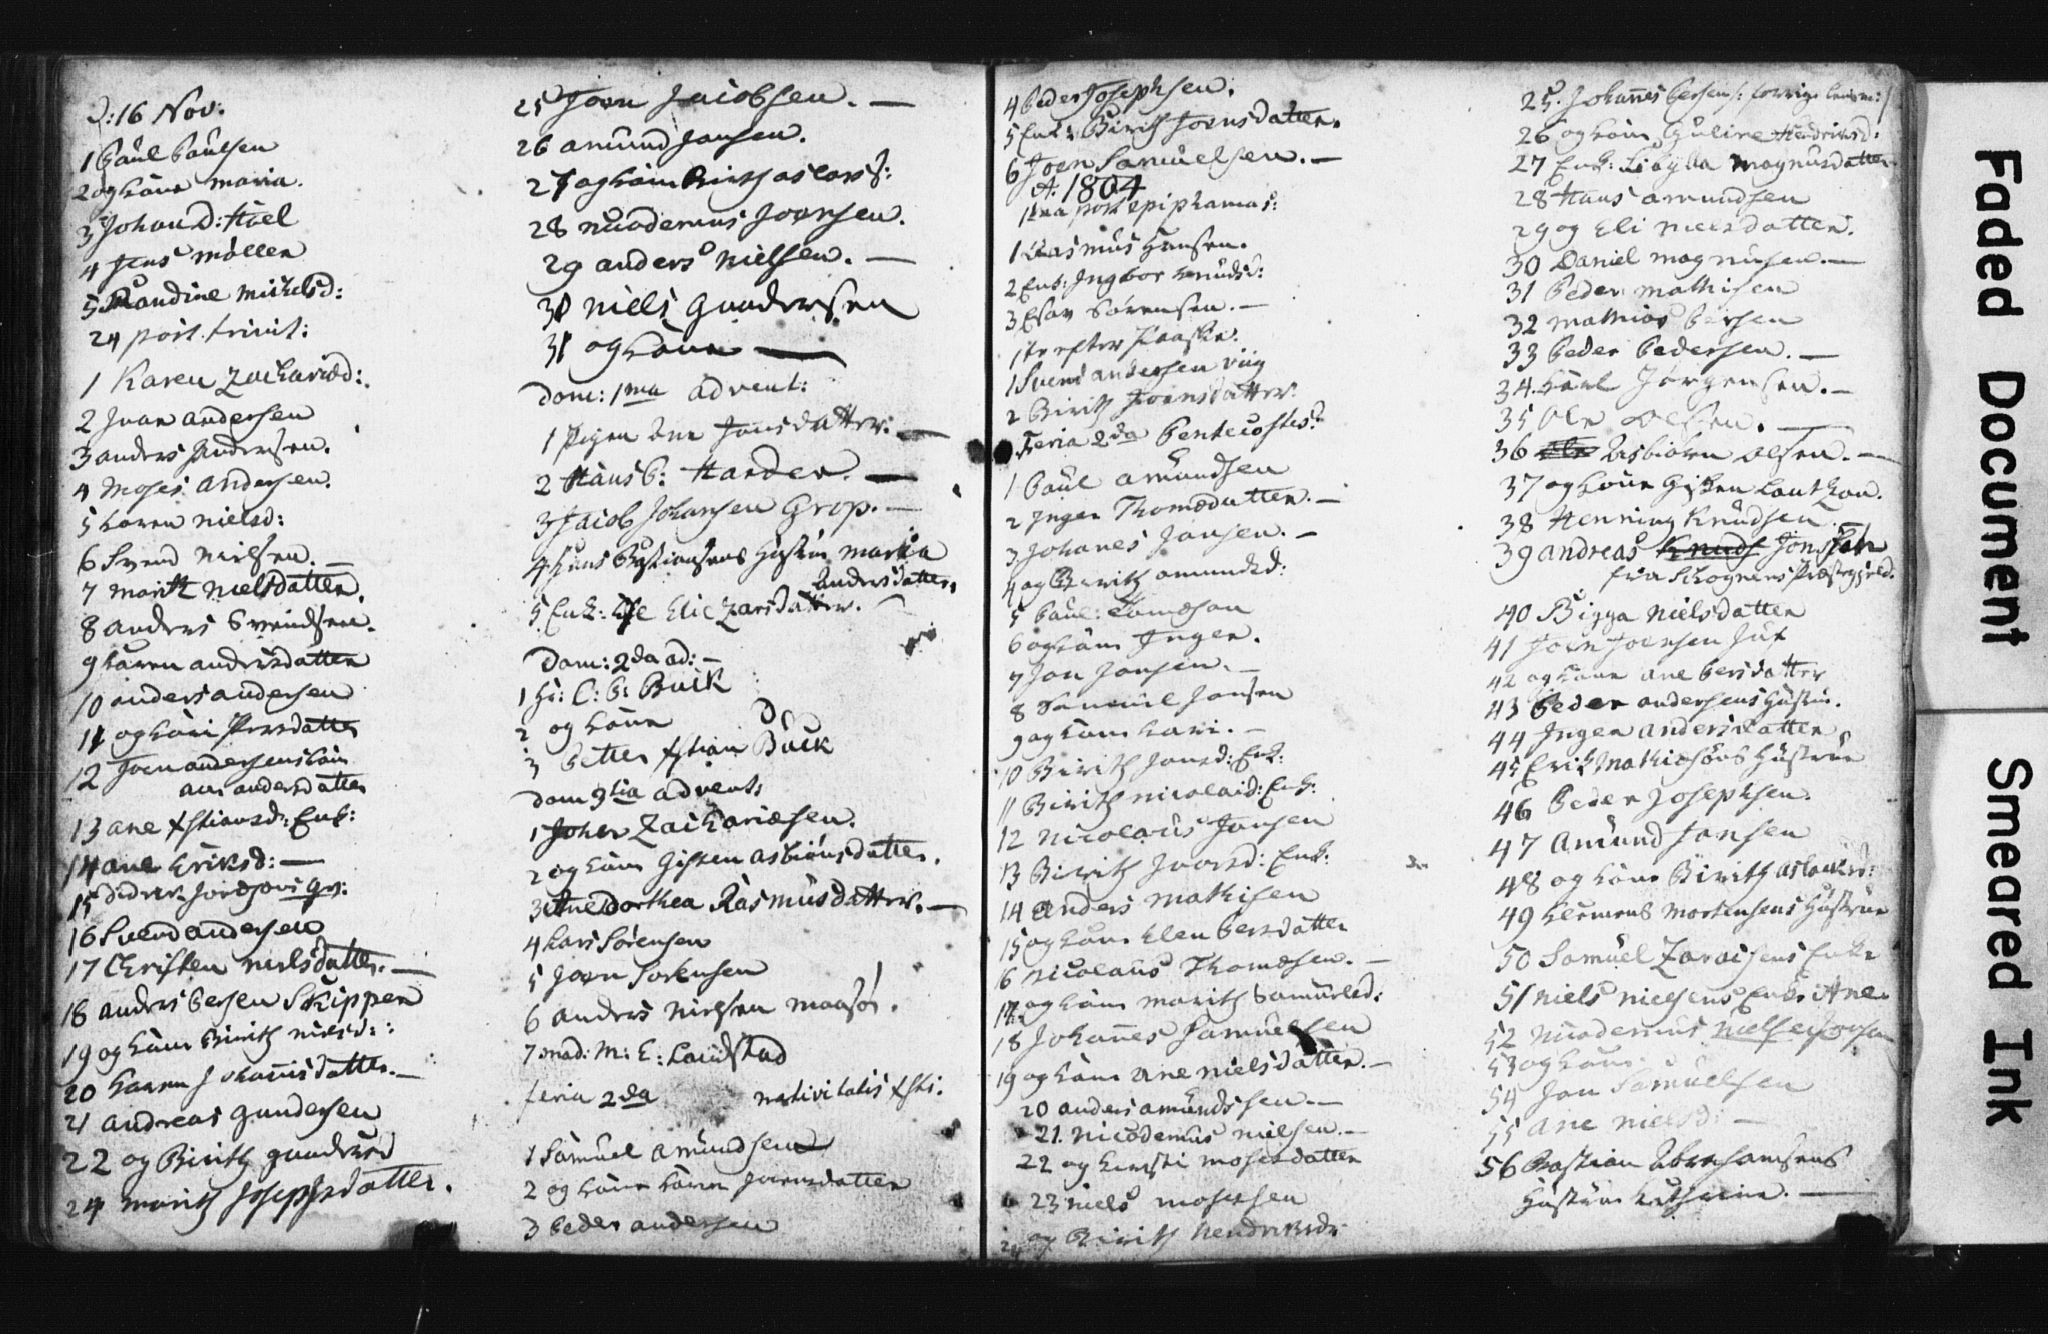 D: 16 Nov:
1 Paul Paulsen
2 og Kone Maria.
3 Johan D: Hoel
4 Jens Møller
5 Randine Mickelsd:
24 post. trinit:
1 Karen Zachariæd:
2 Joen Andersen
3 Anders Andersen.
4 Moses Andersen.
5 Karen Nielsd:
6 Svend Nielsen
7 Marith Nielsdatter.
8 Anders Svendsen.
9 Karen Andersdatter
10 Anders Andersen
11 og Kone Persdatter
12 Joen Andersens Kone
Ane Andersdatter
13 Ane Xstiansd: Enk:
14 Ane Eriksd: —
15
16 Svend Andersen
17 Christen Nielsdatter. —
18 Anders Persen Skipper
19 og Kone Birith Nielsd:
20 Karen Johannisdatter. —
21 Andreas Gundersen
22 og Birith Gundersd
24 Marith Josephsdatter.
25 Joen Jacobsen. —
26 Amund Jansen.
27 og Kone Birith Aslaks:
28 Nicodemus Joensen.
29 Anders Nielsen. —
30 Niels Gundersen
31 og Kone —
Dom: 1ma Advent:
1 Pigen Ane Jonsdatter. —
2 Hans P: Harder. —
3 Jacob Johansen Grop. —
4 Hans Bastiansens Hustru Maria
Andersdatter.
5 Enk: Elie Zarsdatter.
Dom: 2da ad: —
1 Hr: C: P: Buck
2 og Kone
3 Petter Xstian Buck
Dom 3tia Advent:
1 Johan Zachariæsen.
2 og Kone Gisken Asbiönsdatter.
3 Ane Dorthea Rasmusdatter. —
4 Lars Sörensen
5 Joen Sörensen
6 Anders Nielsen Maasøe.
7 Mad: M: E: Laudstad
feria 2da nativitatis Xsti:
1 Samuel Amundsen
2 og Kone Karen Joensdatter
3 Peder Andersen
4 Peder Josephsen.
5 Enk: Birith Joensdatter.
6 Joen Samuelsen. —
A: 1804
1ma post epiphanias:
1 Rasmus Hansen.
2 Enk: Ingbor Knudsd:
3 Esav Sørensen. —
1te efter Paaske.
1 Svend Andersen Viig
2 Birith Joensdatter.
Feria 2da Pentecostes:
1 Paul Amundsen
2 Inger Thomædatter. —
3 Johanes Jansen. —
4 og Birith Amundsd:
5 Paul: Tomæsen
6 og Kone Inger.
7 Jon Jonsen. —
8 Samuel Jansen
9 og Kone Kari. —
10 Birith Jonsd: Enk:
11 Birith Nicolaid: Enk:
12 Nicolaus Jansen
13 Birith Joensd: Enk:
14 Anders Mathisen
15 og Kone Elen Persdatter
16 Nicolaus Thomæsen. —
17 og Kone Marith Samuelsd:
18 Johannes Samuelsen
19 og Kone Ane Nielsdatter. —
20 Anders Amundsen. —
21. Nicodemus Nielsen. —
22 og Kirsti Mosesdatter
23 Niels Mosesen
24 og Birith Hendriksd:
25. Johannes Persens:
26 og Kone Guline Hendriksd:
27 Enk: Sibylla Magnusdatter
28 Hans Amundsen
29 og Eli Nielsdatter.
30 Daniel Magnusen. —
31 Peder Mathisen
32 Mathias Persen
33 Peder Pedersen. —
34. Karl Jørgensen. —
35 Ole Olsen. —
36 Asbiörn Olsen. —
37 og Kone Gisken
38 Henning Knudsen
39 Andreas Knuds Jonsen
40 Bigga Nielsdatter
41 Joen Joensen Juf
42 og Kone Ane Persdatter
43 Peder Andersens Hustru.
44 Inger Andersdatter
45 Erik Mathisøns Hustrue
46 Peder Josephsen.
47 Amund Jansen
48 og Kone Birith Aslaksd:
49 Klemens Mortensens Hustrue
50 Samuel Zaraisens Enke
51 Niels Nielsens Enke Ane
52 Nicodemus Nielsen
53 og Kone
54 Jon Samuelsen
55 Ane Nielsd: —
56 Bastian Abrahamsens
Hustrue Kathrine. —
Faded Document
Smeared Ink